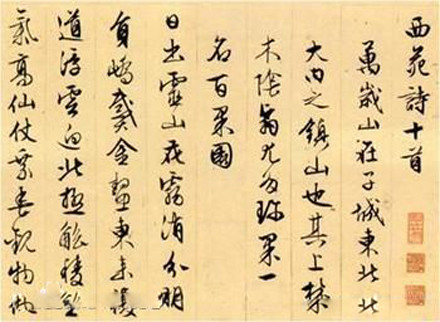 西苑詩十首
萬歲山在子城東北北
大内之鎮山也其上
木陰翳尤多珎果一
名百果園
日出靈山花霧消分明
員嶠戴金鰲東來複
道浮雲迥北極觚稜
氣高仙仗乗春觀物